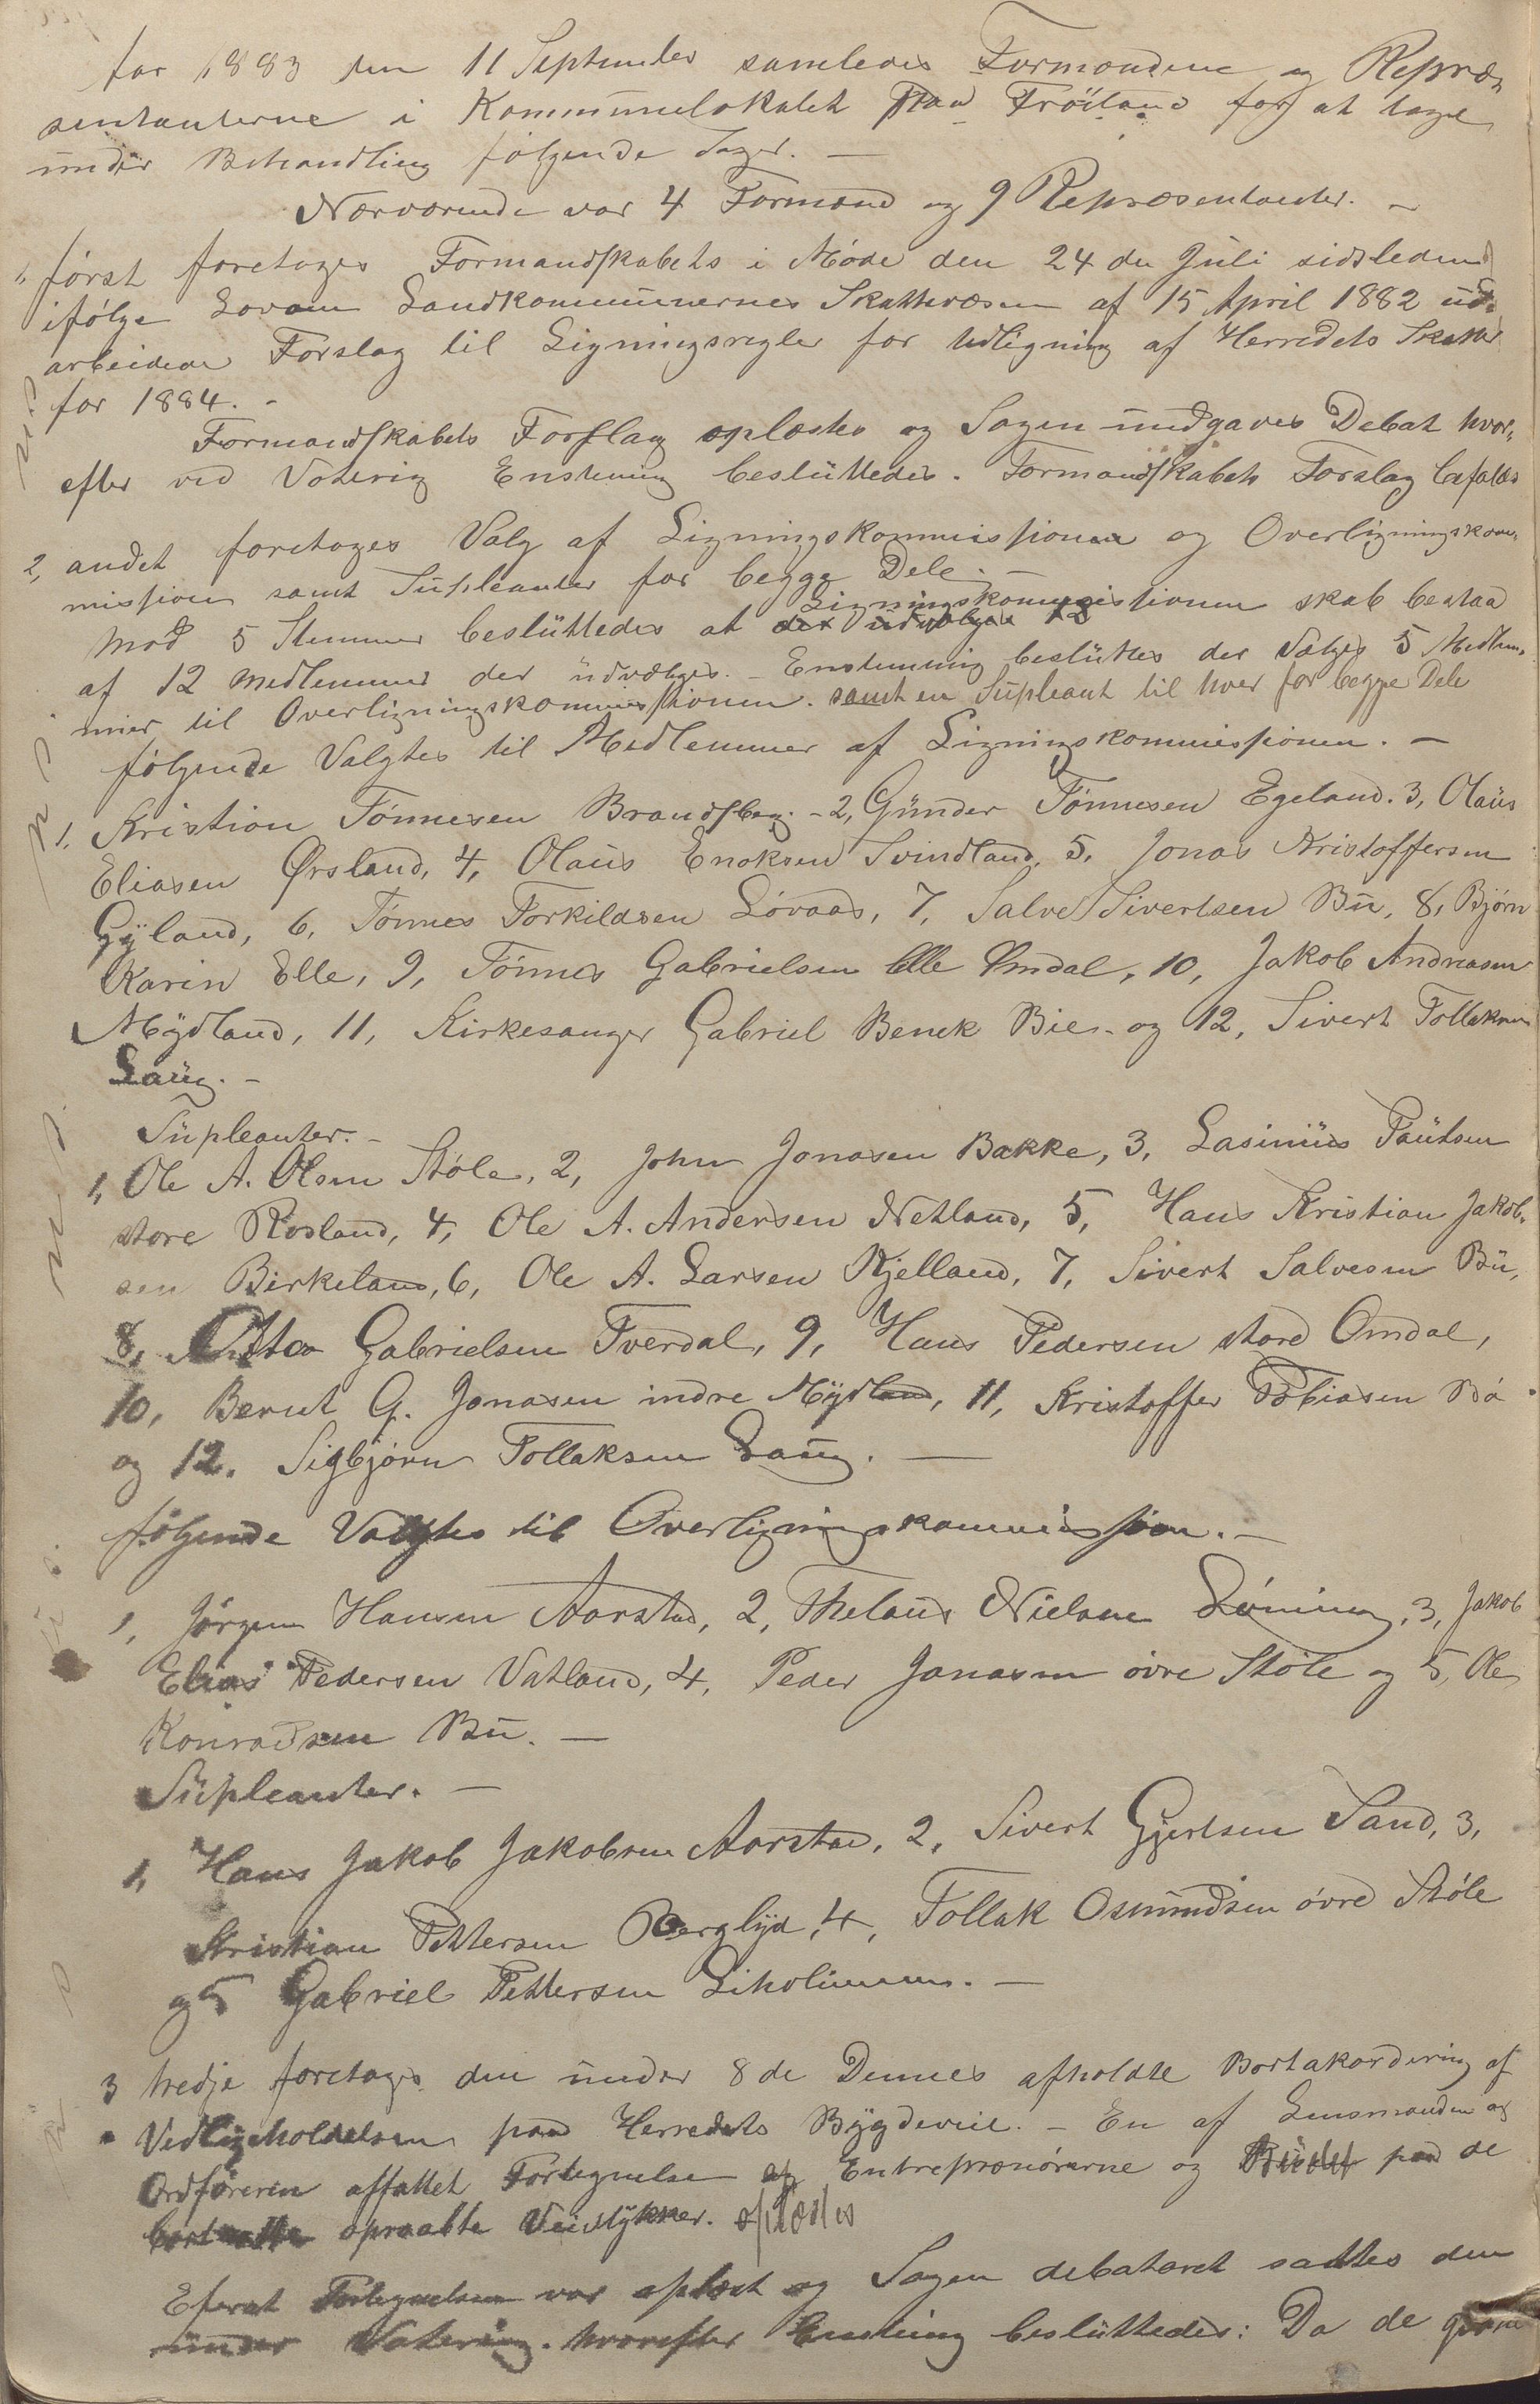 for 1883 den 11 September samledes Formændene og Repræ,
sentanterne i Kommunelokalet paa Fröiland for at tage
under Behandling følgende Sager. —
Nærværende var 4 Formænd og 9 Repræsentanter. —
1, først foretoges Formandskabets i Møde den 24 de Juli sidstleden
ifølge Lov om Landkommunernes Skattevæsen af 15 April 1882 ud,
arbeidede Forslag til Ligningsregler for Udligning af Herredets Skatter
for 1884. -
Formandskabets Forslag oplæstes og Sagen undgaves Debat hvor,
efter ved Votering Enstemmig besluttedes. Formandskabets Forslag bifaldes
2, andet foretoges Valg af Ligningskommissionen og Overligningskom,
mission samt Supleanter for begge Dele. —
Mod 5 Stemmer besluttedes at der udvælges 12 Ligningskommissionen skal bestaa
af 12 Medlemmer der udvælges. - Enstemmig besluttes der Vælges 5 Medlem,
mer til Overligningskommissionen. samt en Supleant til hver for begge Dele
følgende Valgtes til Medlemmer af Ligningskommissionen. —
1, Kristian Tønnesen Brandsberg. - 2, Gunder Tønnesen Egeland. 3, Olaus
Eliasen Ørsland, 4, Olaus Enoksen Svindland, 5, Jonas Kristoffersen
Gyland, 6, Tønnes Torkildsen Løvaas, 7, Salve Sivertsen Bu, 8, Bjørn
Karin Elle, 9, Tønnes Gabrielsen lille Omdal, 10, Jakob Andreasen
Mydland, 11, Kirkesanger Gabriel Benek Bie - og 12, Sivert Tollaksen
Laug. -
Supleanter. -
1, Ole A. Olsen Støle, 2, John Jonasen Bakke, 3, Rasmus Paulsen
store Rosland, 4, Ole A. Andersen Netland, 5, Hans Kristian Jakob,
sen Birkeland, 6, Ole A. Larsen Kjelland, 7, Sivert Salvesen Bu,
8, Otto Gabrielsen Tverdal, 9, Hans Pedersen store Omdal,
10, Bernt G. Jonasen indre Mydland, 11, Kristoffer Tobiasen Bø
og 12. Sigbjørn Tollaksen Laug. —
følgende Valgtes til Overligningskommission. —
1, Jørgen Hansen Aarstad, 2, Thelaus Nielsen Løining, 3, Jakob
Elias Pedersen Vatland, 4, Peder Jonasen øvre Støle og 5, Ole
Konradsen Bu. —
Supleanter. —
1, Hans Jakob Jakobsen Aarstad, 2, Sivert Gjertsen Sand, 3,
Kristian Pettersen Berglyd, 4, Tollak Osmundsen øvre Støle
og 5 Gabriel Pettersen Liholmen. —
3 tredje foretoges den under 8 de Dennes afholdte Bortakordering af
Vedligeholdelsen paa Herredets Bygdeveie. - En af Lensmanden og
Ordføreren affattet Fortegnelse af Entreprenørerne og Budet paa de
opraabte Veistykker. oplæstes
Efterat Fortegnelsen var oplæst og Sagen debateret sattes den
under Votering. hvorefter Enstemmig besluttedes: Da de